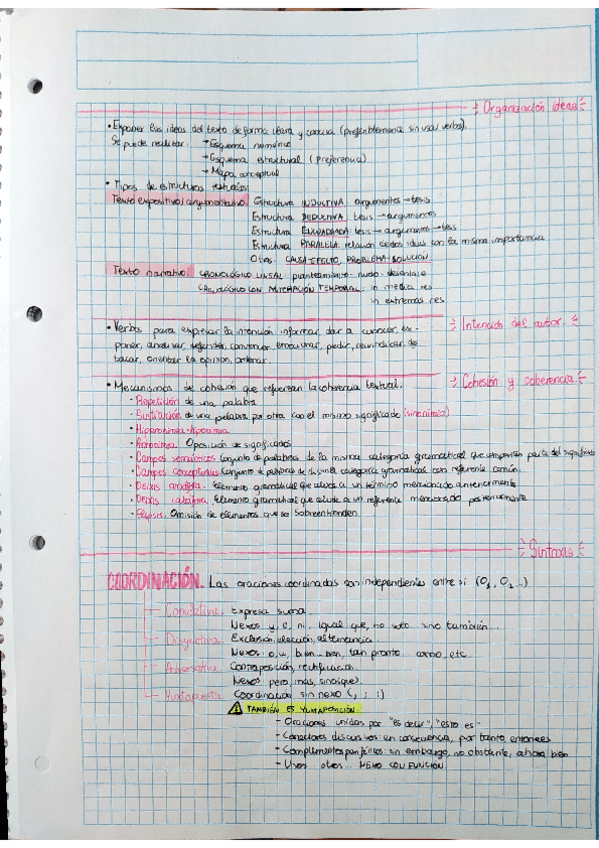 Organización ideas
• Exponer las ideas del texto de forma clara y concisa (preferiblemente sin usar verbos).
Se puede realizar: → Esquema numérico
→ Esquema estructural (preferencia)
→ Mapa conceptual
• Tipos de estructuras textuales:
Texto expositivo/argumentativo: Estructura INDUCTIVA: argumentos → tesis
Estructura DEDUCTIVA: tesis → argumentos
Estructura ENCUADRADA: tesis → argumentos → tesis
Estructura PARALELA: relación ideas con la misma importancia
Otras: CAUSA-EFECTO, PROBLEMA-SOLUCIÓN
Texto narrativo: CRONOLÓGICO LINEAL: planteamiento - nudo - desenlace
CRONOLÓGICO CON ALTERACIÓN TEMPORAL: in media res
in extremas res
Intención del autor.
• Verbos para expresar la intención: informar, dar a conocer, ex-
poner, analizar, defender, convencer, emocionar, pedir, reivindicar, des-
tacar, orientar la opinión, ordenar.
Cohesión y coherencia.
• Mecanismos de cohesión que refuerzan la coherencia textual.
- Repetición de una palabra
- Sustitución de una palabra por otra con el mismo significado (sinonimia)
- Hiperonimia-hiponimia
- Antonimia. Oposición de significados
- Campos semánticos Conjunto de palabras de la misma categoría gramatical que comparten parte del significado
- Campos conceptuales Conjunto de palabras de distinta categoría gramatical con referente común.
- Deixis anafórica. Elemento gramatical que alude a un término mencionado anteriormente
- Deixis catafórica. Elemento gramatical que alude a un referente mencionado posteriormente
- Elipsis. Omisión de elementos que se sobreentienden.
Sintaxis.
COORDINACIÓN. Las oraciones coordinadas son independientes entre si (O1, O2...)
Copulativa. Expresa suma.
Nexos: y, e, ni, igual que, no solo... sino también...
Disyuntiva. Exclusión, elección, alternancia.
Nexos: o, u, bien... bien, tan pronto... como, etc.
Adversativa. Contraposición, rectificación.
Nexos: pero, mas, sino que.
Yuxtapuesta. Coordinación sin nexo (, ; :)
TAMBIÉN ES YUXTAPOSICIÓN:
- Oraciones unidas por "es decir", "esto es"
- Conectores discursivos: en consecuencia, por tanto, entonces
- Complementos: sin embargo, no obstante, ahora bien
- Unos... otros... NEXO CON FUNCIÓN.